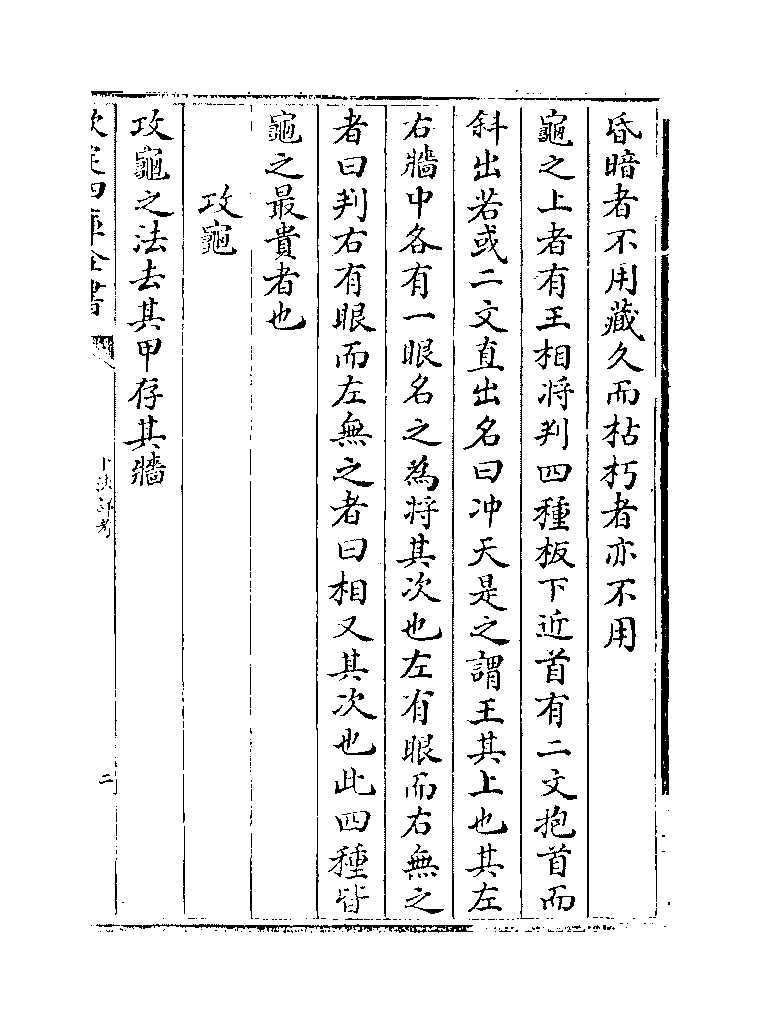 昏暗者不用藏久而枯朽者亦不用
龜之上者有王相将判四種板下近首有二文抱首而
斜出若或二文直出名曰冲天是之謂王其上也其左
右牆中各有一眼名之為将其次也左有眼而右無之
者曰判右有眼而左無之者曰相又其次也此四種皆
龜之最貴者也
攻龜
攻龜之法去其甲存其牆
欽定四庫全書
卜法詳考
二